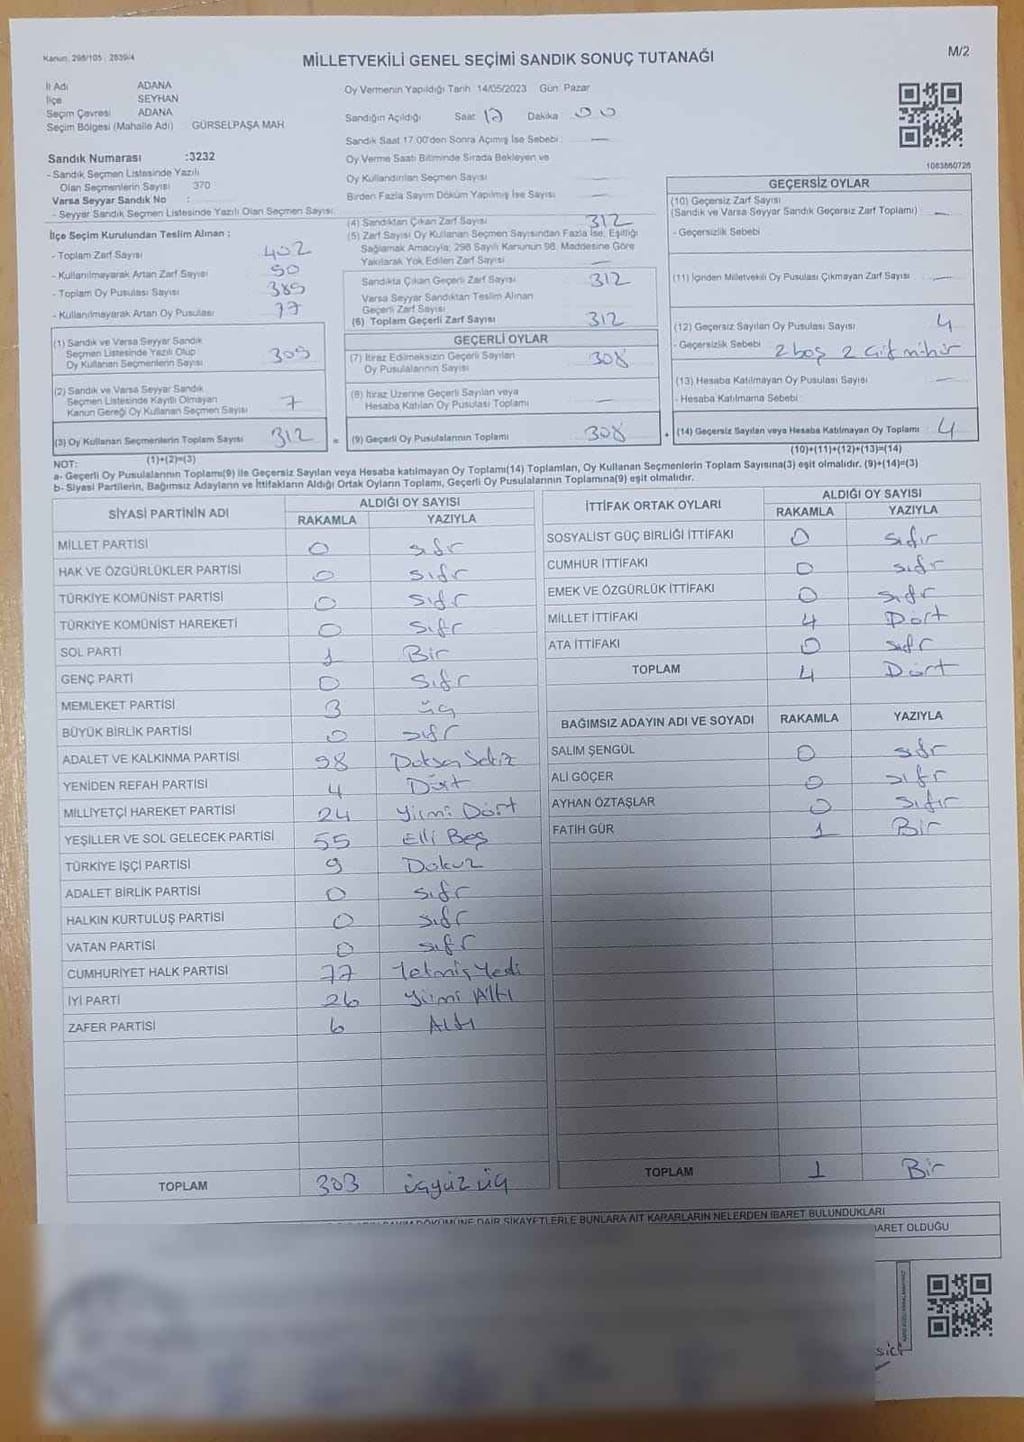 Kanun: 298/105 2839/4
MİLLETVEKİLİ GENEL SEÇİMİ SANDIK SONUÇ TUTANAĞI
M/2
İl Adı ADANA
İlçe SEYHAN
Seçim Çevresi ADANA
Seçim Bölgesi (Mahalle Adı) GÜRSELPAŞA MAH
Sandık Numarası :3232
- Sandık Seçmen Listesinde Yazılı
Olan Seçmenlerin Sayısı 370
Varsa Seyyar Sandık No :
- Seyyar Sandık Seçmen Listesinde Yazılı Olan Seçmen Sayısı:
İlçe Seçim Kurulundan Teslim Alınan :
- Toplam Zarf Sayısı 402
- Kullanılmayarak Artan Zarf Sayısı 90
- Toplam Oy Pusulası Sayısı 389
- Kullanılmayarak Artan Oy Pusulası 77
(1) Sandık ve Varsa Seyyar Sandık
Seçmen Listesinde Yazılı Olup
Oy Kullanan Seçmenlerin Sayısı 305
(2) Sandık ve Varsa Seyyar Sandık
Seçmen Listesinde Kayıtlı Olmayan
Kanun Gereği Oy Kullanan Seçmen Sayısı 7
(3) Oy Kullanan Seçmenlerin Toplam Sayısı 312 =
(1)+(2)=(3)
Oy Vermenin Yapıldığı Tarih 14/05/2023 Gün: Pazar
Sandığın Açıldığı Saat 17 Dakika 00
Sandık Saat 17:00'den Sonra Açımış İse Sebebi : —
Oy Verme Saati Bitiminde Sırada Bekleyen ve
Oy Kullandırılan Seçmen Sayısı —
Birden Fazla Sayım Döküm Yapılmış İse Sayısı —
(4) Sandıktan Çıkan Zarf Sayısı 312
(5) Zarf Sayısı Oy Kullanan Seçmen Sayısından Fazla İse, Eşitliği
Sağlamak Amacıyla; 298 Sayılı Kanunun 98. Maddesine Göre
Yakılarak Yok Edilen Zarf Sayısı —
Sandıkta Çıkan Geçerli Zarf Sayısı 312
Varsa Seyyar Sandıktan Teslim Alınan
Geçerli Zarf Sayısı
(6) Toplam Geçerli Zarf Sayısı 312
GEÇERLİ OYLAR
(7) İtiraz Edilmeksizin Geçerli Sayılan
Oy Pusulalarının Sayısı 308
(8) İtiraz Üzerine Geçerli Sayılan veya
Hesaba Katılan Oy Pusulası Toplamı —
(9) Geçerli Oy Pusulalarının Toplamı 308 +
1083860726
GEÇERSİZ OYLAR
(10) Geçersiz Zarf Sayısı
(Sandık ve Varsa Seyyar Sandık Geçersiz Zarf Toplamı) —
- Geçersizlik Sebebi
(11) İçinden Milletvekili Oy Pusulası Çıkmayan Zarf Sayısı —
(12) Geçersiz Sayılan Oy Pusulası Sayısı 4
- Geçersizlik Sebebi 2 boş 2 çift mühür
(13) Hesaba Katılmayan Oy Pusulası Sayısı —
- Hesaba Katılmama Sebebi
(14) Geçersiz Sayılan veya Hesaba Katılmayan Oy Toplamı 4
(10)+(11)+(12)+(13)=(14)
NOT:
a- Geçerli Oy Pusulalarının Toplamı(9) ile Geçersiz Sayılan veya Hesaba katılmayan Oy Toplamı(14) Toplamları, Oy Kullanan Seçmenlerin Toplam Sayısına(3) eşit olmalıdır. (9)+(14)=(3)
b- Siyasi Partilerin, Bağımsız Adayların ve İttifakların Aldığı Ortak Oyların Toplamı, Geçerli Oy Pusulalarının Toplamına(9) eşit olmalıdır.
SİYASİ PARTİNİN ADI ALDIĞI OY SAYISI
RAKAMLA YAZIYLA
MİLLET PARTİSİ 0 sıfır
HAK VE ÖZGÜRLÜKLER PARTİSİ 0 sıfır
TÜRKİYE KOMÜNİST PARTİSİ 0 sıfır
TÜRKİYE KOMÜNİST HAREKETİ 0 sıfır
SOL PARTİ 1 Bir
GENÇ PARTİ 0 sıfır
MEMLEKET PARTİSİ 3 üç
BÜYÜK BİRLİK PARTİSİ 0 sıfır
ADALET VE KALKINMA PARTİSİ 98 Doksan Sekiz
YENİDEN REFAH PARTİSİ 4 Dört
MİLLİYETÇİ HAREKET PARTİSİ 24 Yirmi Dört
YEŞİLLER VE SOL GELECEK PARTİSİ 55 Elli Beş
TÜRKİYE İŞÇİ PARTİSİ 9 Dokuz
ADALET BİRLİK PARTİSİ 0 sıfır
HALKIN KURTULUŞ PARTİSİ 0 sıfır
VATAN PARTİSİ 0 sıfır
CUMHURİYET HALK PARTİSİ 77 Yetmiş Yedi
İYİ PARTİ 26 Yirmi Altı
ZAFER PARTİSİ 6 Altı
TOPLAM 303 üçyüz üç
İTTİFAK ORTAK OYLARI ALDIĞI OY SAYISI
RAKAMLA YAZIYLA
SOSYALİST GÜÇ BİRLİĞİ İTTİFAKI 0 sıfır
CUMHUR İTTİFAKI 0 sıfır
EMEK VE ÖZGÜRLÜK İTTİFAKI 0 sıfır
MİLLET İTTİFAKI 4 Dört
ATA İTTİFAKI 0 sıfır
TOPLAM 4 Dört
BAĞIMSIZ ADAYIN ADI VE SOYADI RAKAMLA YAZIYLA
SALİM ŞENGÜL 0 sıfır
ALİ GÖÇER 0 sıfır
AYHAN ÖZTAŞLAR 0 sıfır
FATİH GÜR 1 Bir
TOPLAM 1 Bir
DÖKÜMÜNE DAİR ŞİKAYETLERLE BUNLARA AİT KARARLARIN NELERDEN İBARET BULUNDUKLARI
OLDUĞU